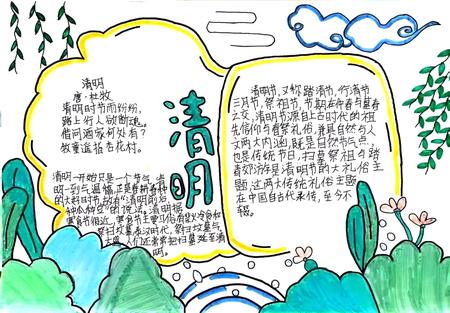 清明
唐·杜牧
清明时节雨纷纷,
路上行人欲断魂。
借问酒家何处有?
牧童遥指杏花村。
清明一开始只是一个节气,清
明一到气温
的大好时节,故有"清明前后
种瓜种豆"的说法。清明接
寒食节相近,寒食节主要习俗有禁火冷食和
祭扫坟墓表达
大盛,人们还常常把扫墓延至清
明。
清明
清明节,又称踏清节,行清节
三月节,祭祖节,节期在仲春与暮春
之交,清明节源自上古时代的祖
先信仰与春祭礼俗,兼具自然与人
文两大内涵,既是自然节气点,
也是传统节日,扫墓祭祖与踏
青郊游是清明节的两大礼俗主
题,这两大传统礼俗主题
在中国自古代来传,至今不
辍。